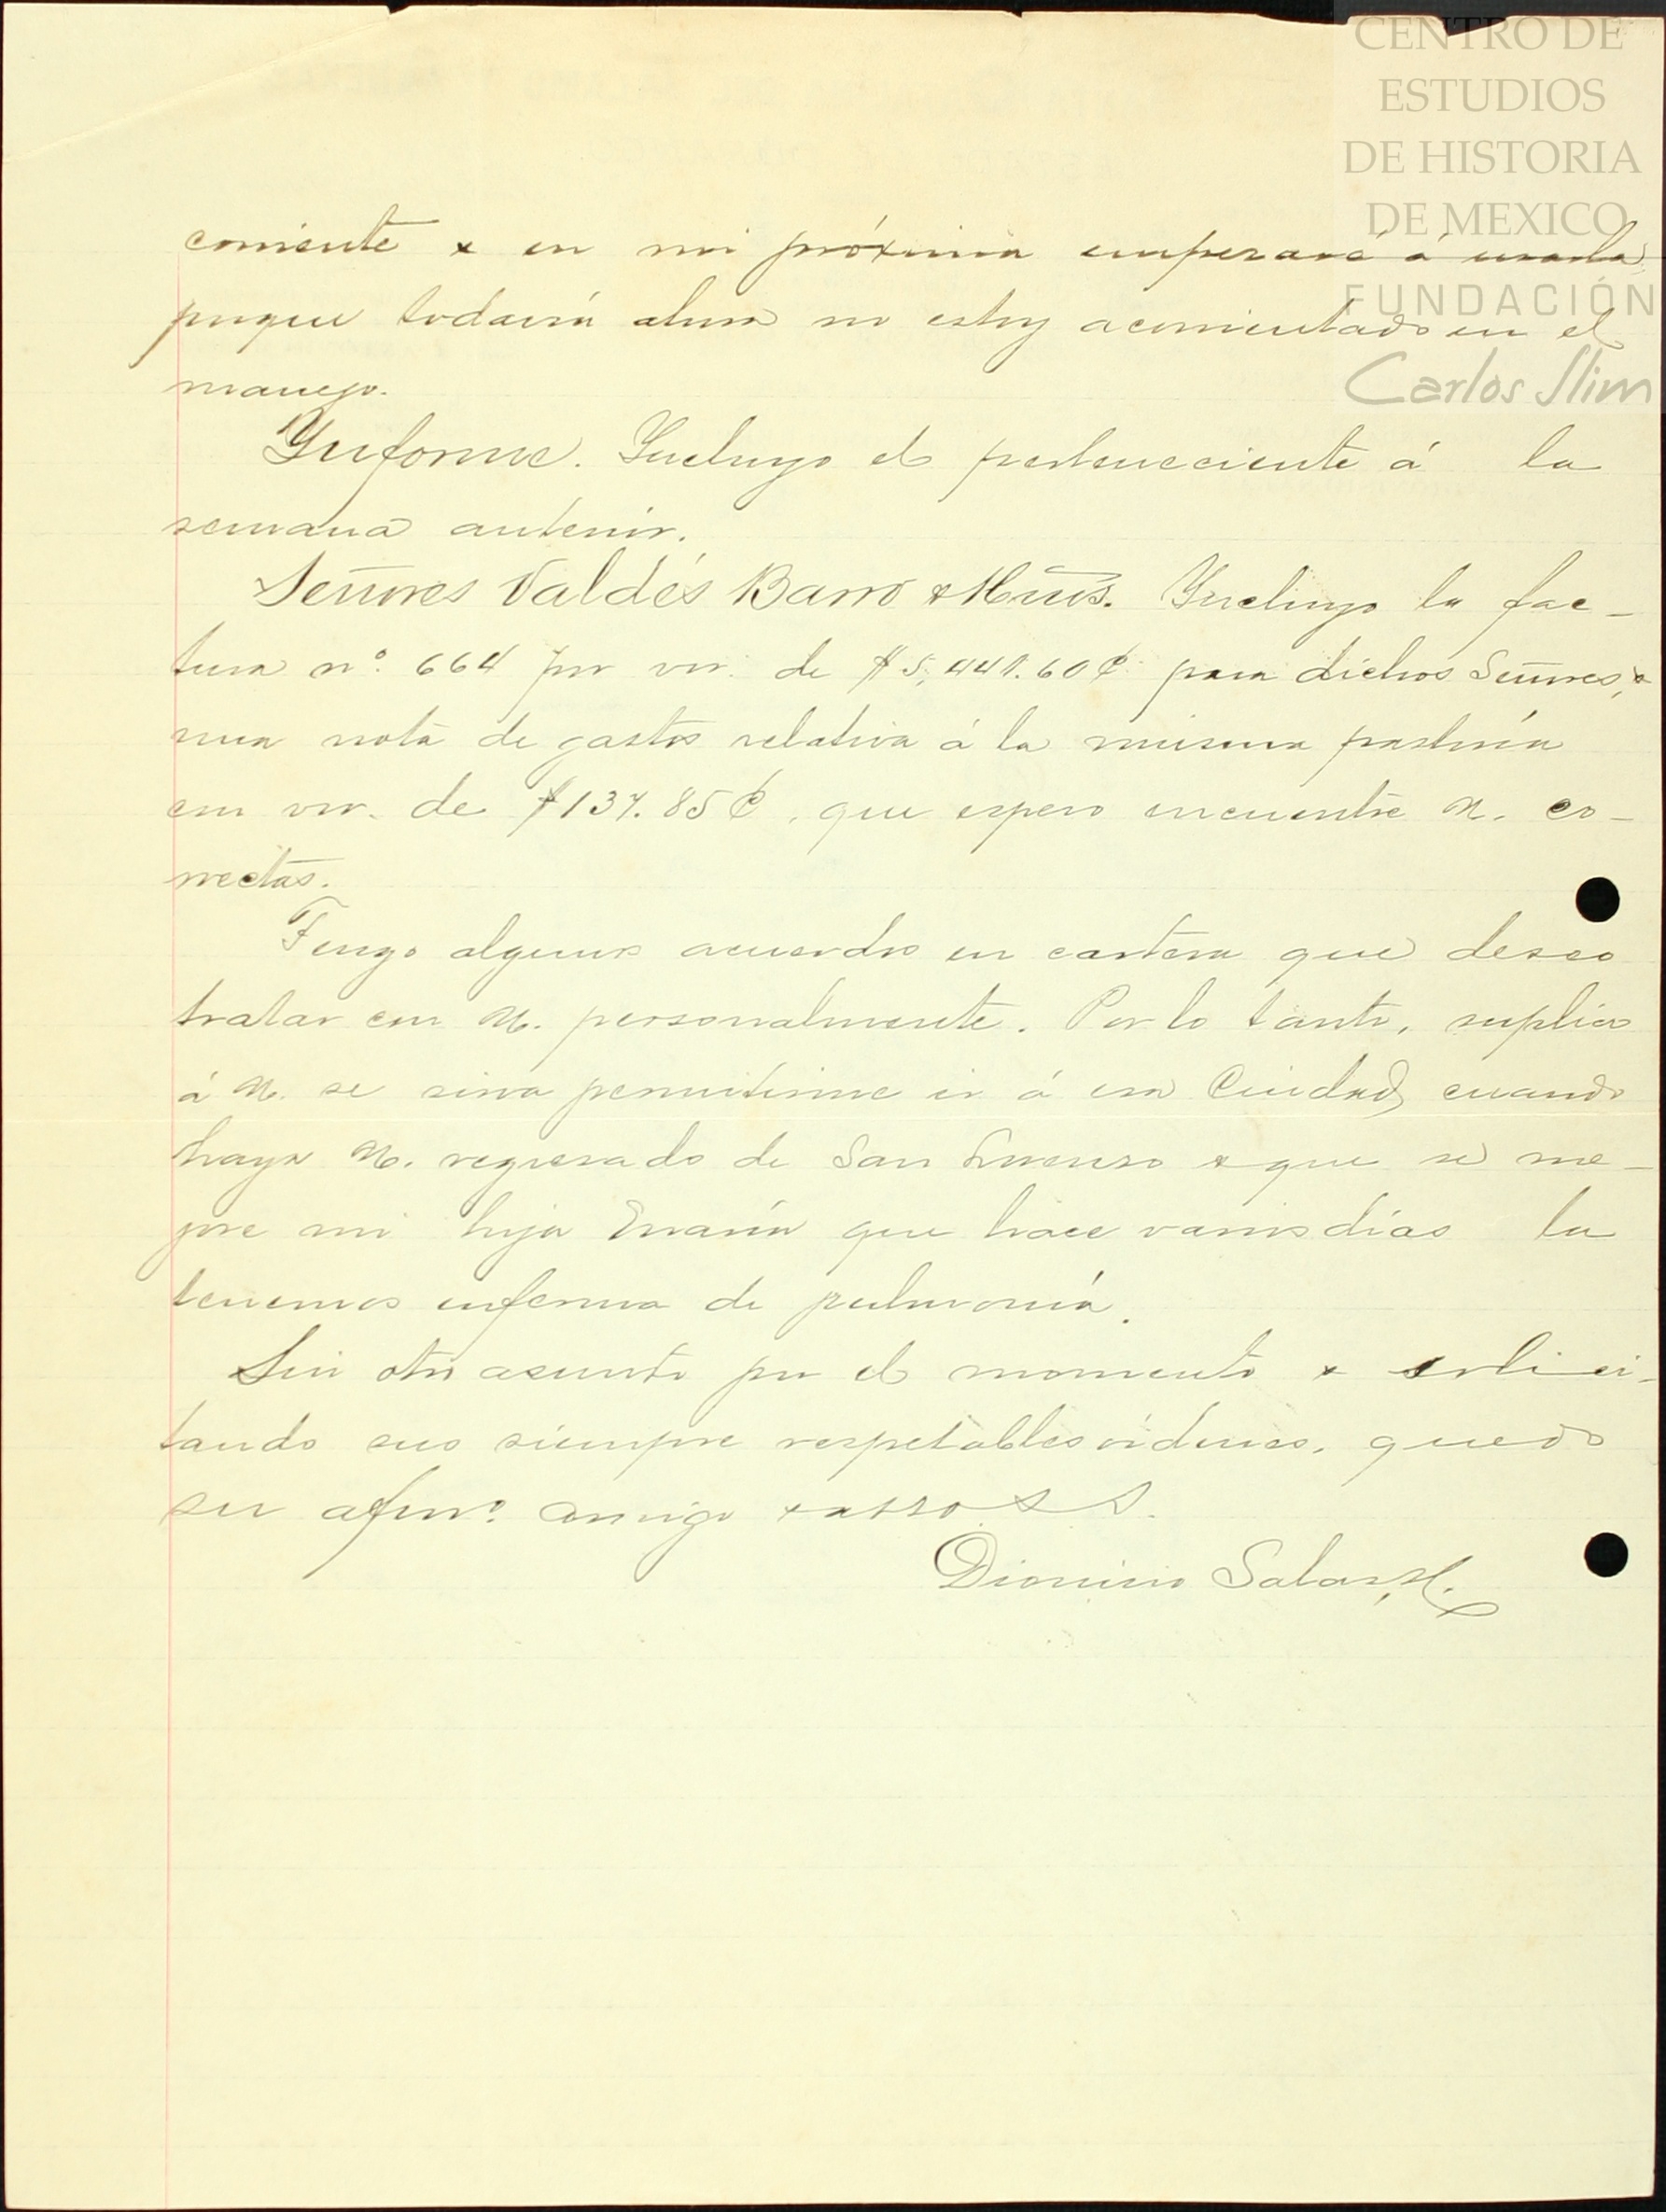 CENTRO DE
ESTUDIOS
DE HISTORIA
DE MEXICO
FUNDACIÓN
Carlos Slim
corriente & en mi próxima emperaré á usarla
porque todavía ahora no estoy acorrientado en el
manejo.
Informe. Incluyo el perteneciente á la
semana anterior.
Señores Valdés Barro & Hnos. Incluyo la fac-
tura nº. 664 por vor. de $5,441.60 ¢ para dichos Señores, &
una nota de gastos relativa á la misma partida
con vor. de $137.85 ¢, que espero encuentre U. co-
rrectas.
Tengo algunos acuerdos en cartera que deseo
tratar con U. personalmente. Por lo tanto, suplico
á U. se sirva permitirme ir á esa Ciudad, cuando
haya U. regresado de San Lorenzo & que se me-
jore mi hija María que hace varios días la
tenemos enferma de pulmonía.
Sin otro asunto por el momento & solici-
tando sus siempre respetables órdenes, quedo
su afmo. amigo & atto S S.
Dionisio Salas H.